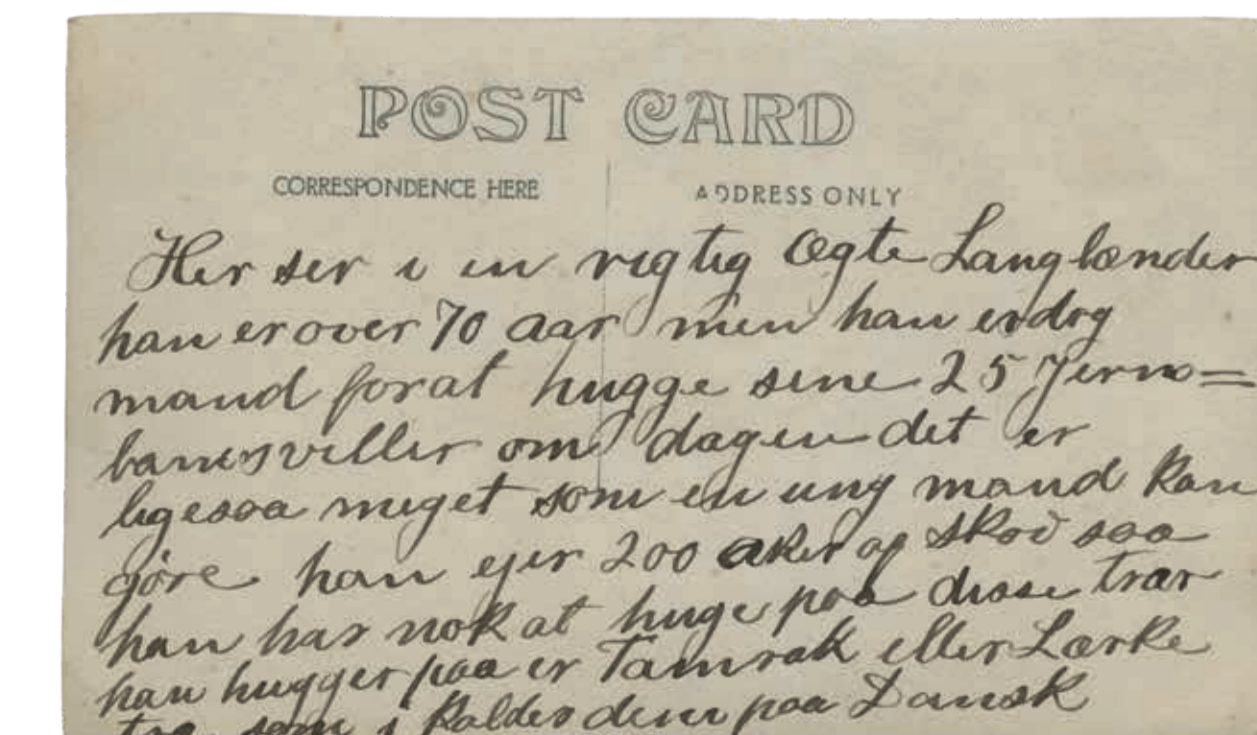 POST CARD
CORRESPONDENCE HERE
ADDRESS ONLY
Her ser i en rigtig Ægte Langlænder
han er over 70 aar men han er dog
mand for at hugge sine 25 Jern=
banesviller om dagen det er
ligesaa meget som en ung mand kan
göre han ejer 200 aker af skov saa
han har nok at huge paa disse træer
han hugger paa er Tamrak eller Lærke
træ som i kalder dem paa Dansk